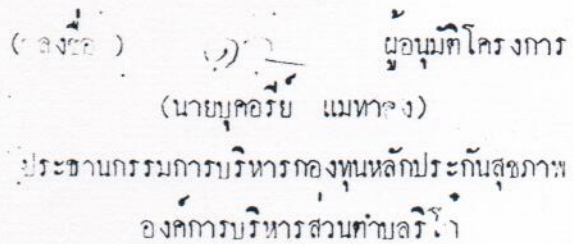 (ลงชื่อ ) ผู้อนุมัติโครงการ
(นายบุคอรีย์
ประธานกรรมการบริหารกองทุนหลักประกันสุขภาพ
องค์การบริหารส่วนตำบลริโก๋